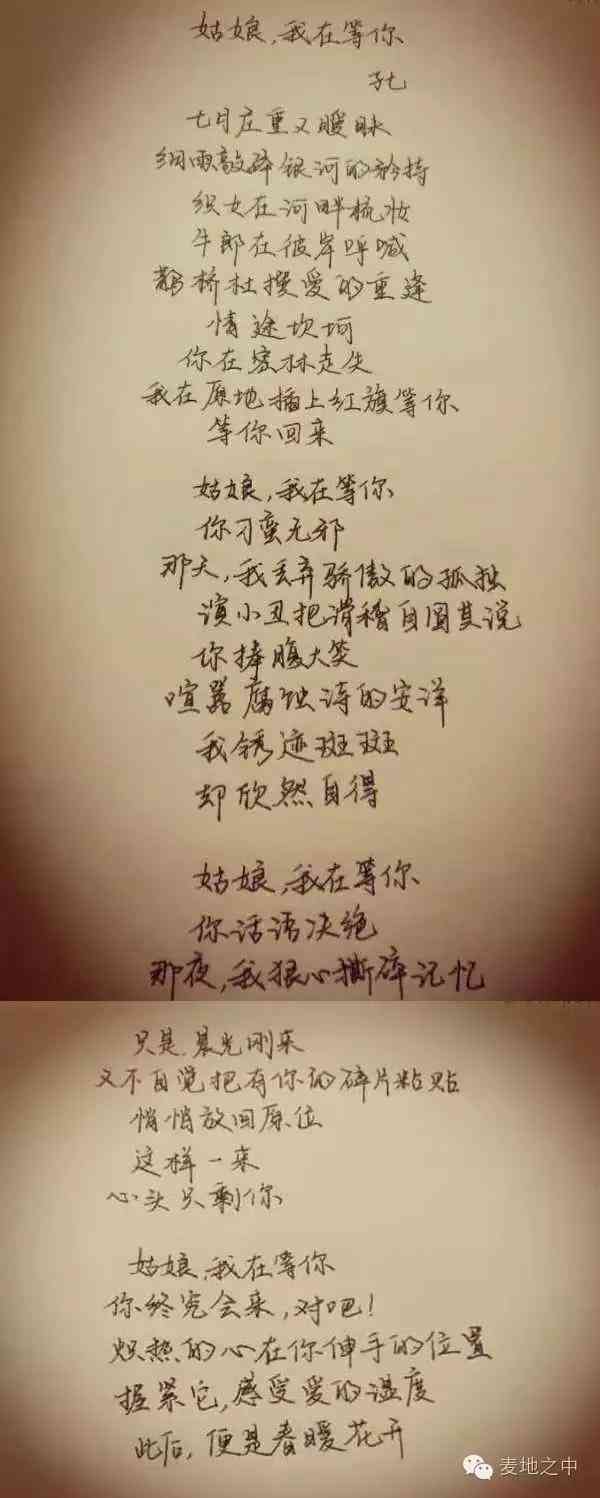 姑娘，我在等你
孔七
七月庄重又暧昧
细雨敲碎银河的矜持
织女在河畔梳妆
牛郎在彼岸呼喊
鹊桥杜撰爱的重逢
情途坎坷
你在密林走失
我在原地插上红旗等你
等你回来
姑娘，我在等你
你刁蛮无邪
那天，我丢弃骄傲的孤独
演小丑把滑稽自圆其说
你捧腹大笑
喧嚣腐蚀诗的安详
我锈迹斑斑
却欣然自得
姑娘，我在等你
你话语决绝
那夜，我狠心撕碎记忆
只是，晨光刚来
又不自觉把有你的碎片粘贴
悄悄放回原位
这样一来
心头只剩你
姑娘，我在等你
你终究会来，对吧！
炽热的心在你伸手的位置
握紧它，感受爱的温度
此后，便是春暖花开
麦地之中